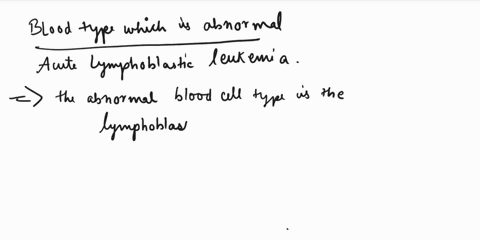 Blood type which is abnormal
Acute lymphoblastic leukemia.
=> the abnormal blood cell type is the
lymphoblas